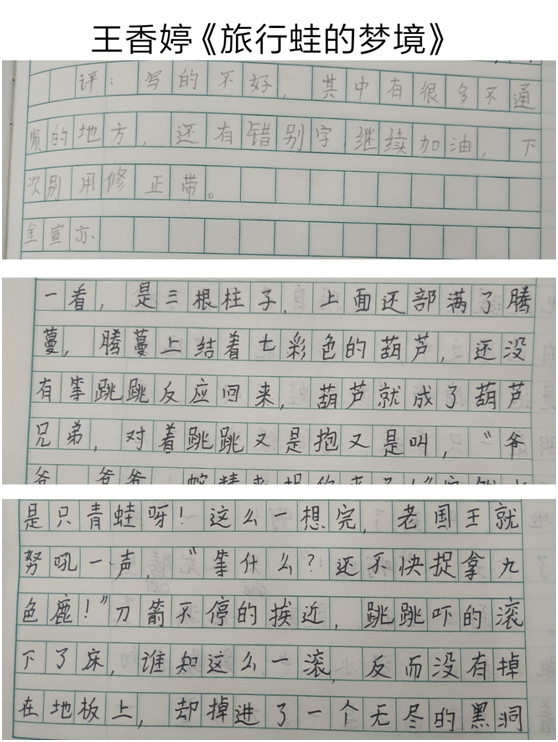 王香婷《旅行蛙的梦境》
评：写的不好，其中有很多不通
顺的地方，还有错别字，继续加油，下
次别用修正带。
金宣亦
一看，是三根柱子，上面还部满了腾
蔓，腾蔓上结着七彩色的葫芦，还没
有等跳跳反应回来，葫芦就成了葫芦
兄弟，对着跳跳又是抱又是叫，“爷
是只青蛙呀！这么一想完，老国王就
努吼一声，“等什么？还不快捉拿九
色鹿！”刀箭不停的挨近，跳跳吓的滚
下了床，谁知这么一滚，反而没有掉
在地板上，却掉进了一个无尽的黑洞